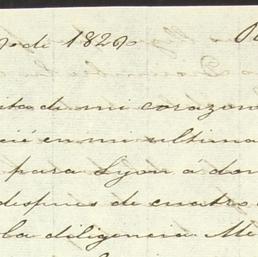 de 1829
ita de mi corazon
cié en mi ultima
para Lyon á don
despues de cuatro
la diligencia Me